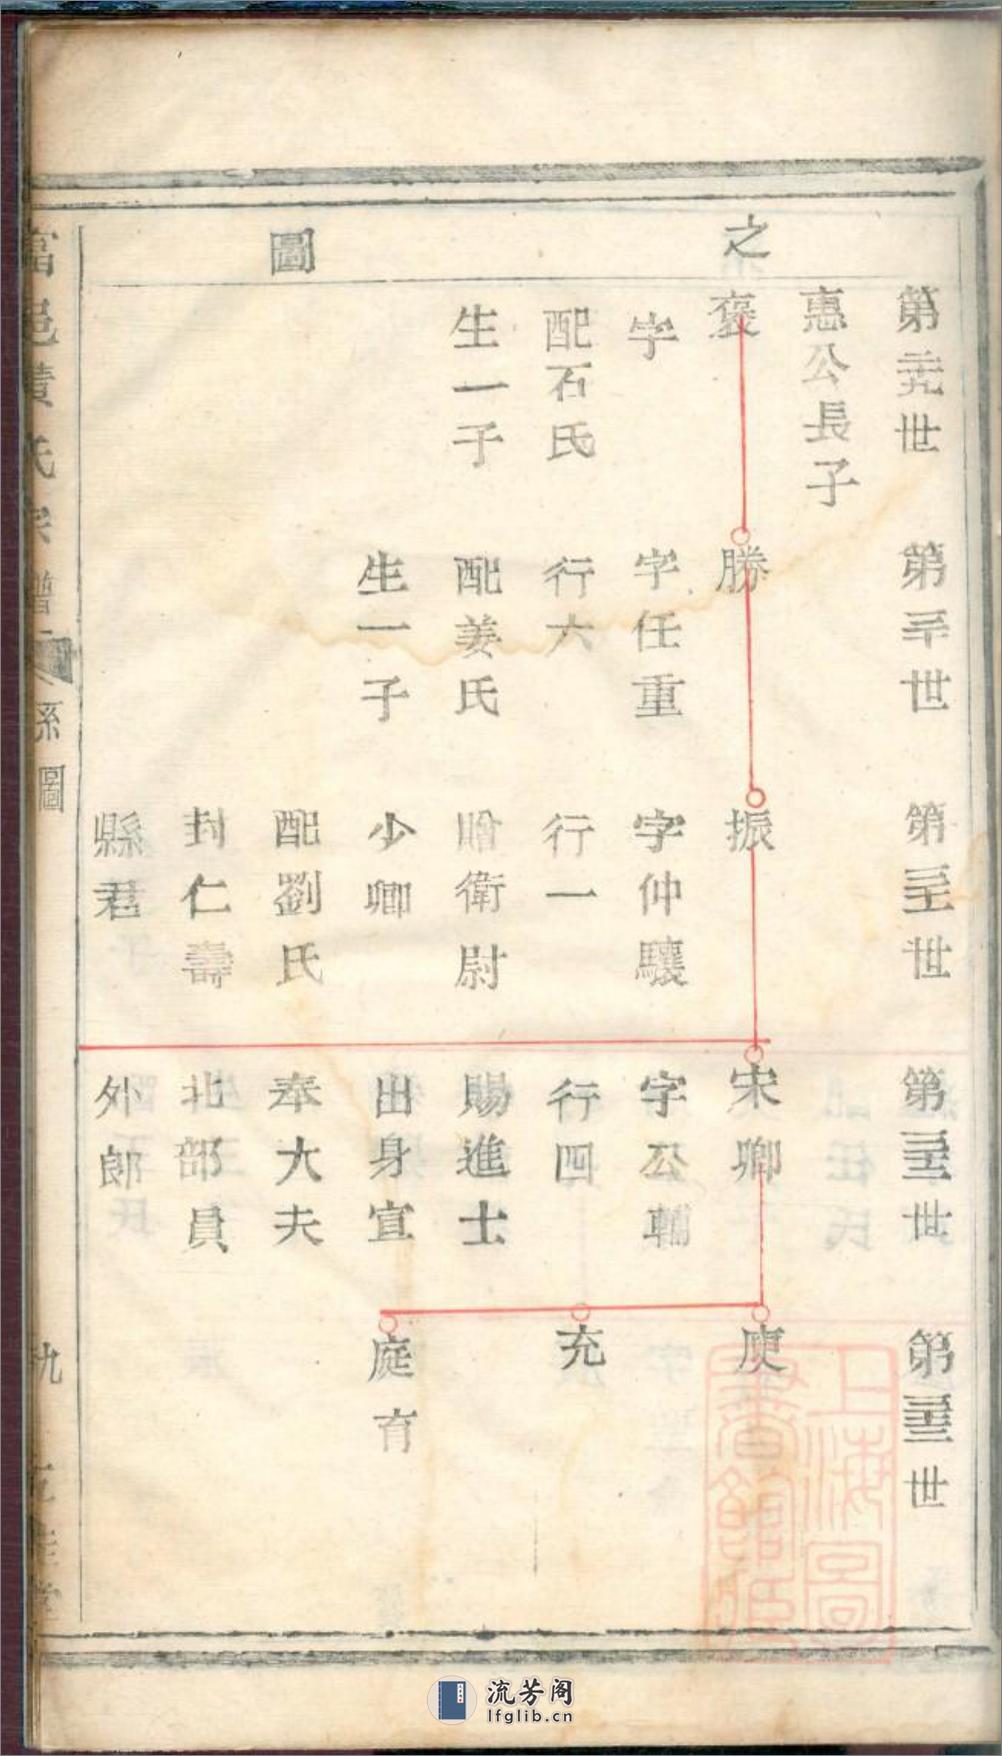 之
圖
第二十九世
惠公長子
褒
字
配石氏
生一子
第三十世
勝
字任重
行六
配姜氏
生一子
第三十一世
振
字仲驤
行一
贈衛尉
少卿
配劉氏
封仁壽
縣君
第三十二世
宋卿
字公輔
行四
賜進士
出身宣
奉大夫
北部員
外郎
第三十三世
庾
充
庭育
富邑黃氏宗譜
系圖
九
上海圖
書館
流芳阁
lfglib.cn